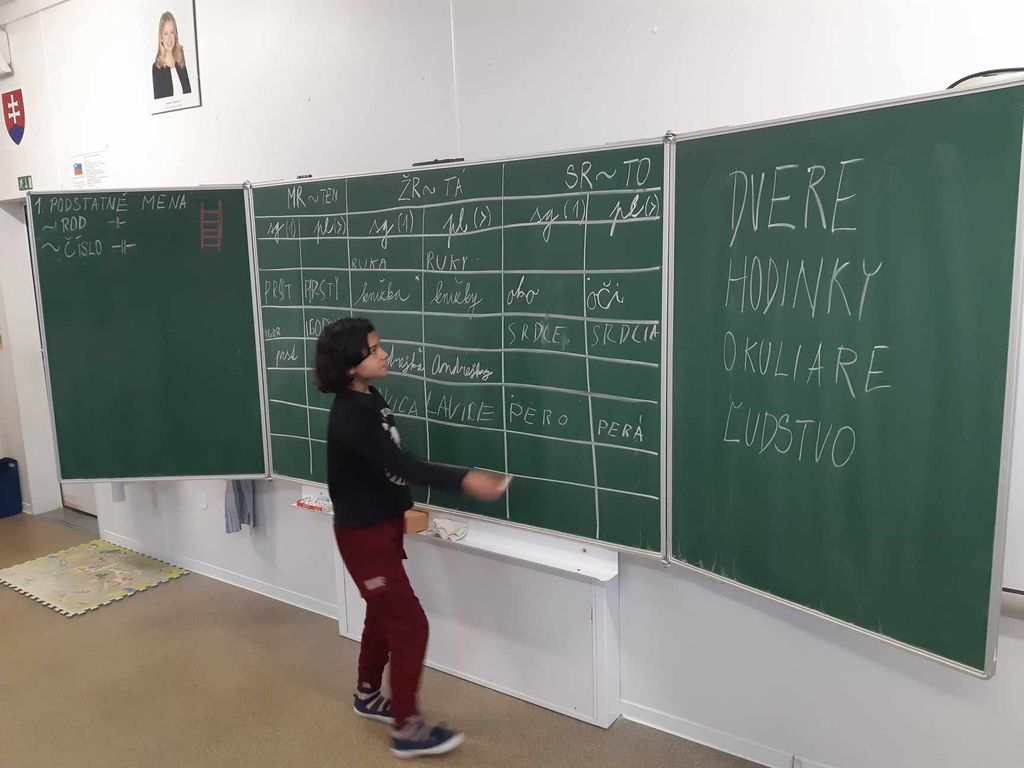 1. PODSTATNÉ MENÁ
~ ROD
~ ČÍSLO
MR ~ TEN ŽR ~ TÁ SR ~ TO
sg(1) pl(>) sg(1) pl(>) sg(1) pl(>)
RUKA RUKY
PRST PRSTY knižka knižky oko oči
IGOR IGOR SRDCE SRDCIA
prst Andrejky
LAVICE PERO PERÁ
DVERE
HODINKY
OKULIARE
ĽUDSTVO